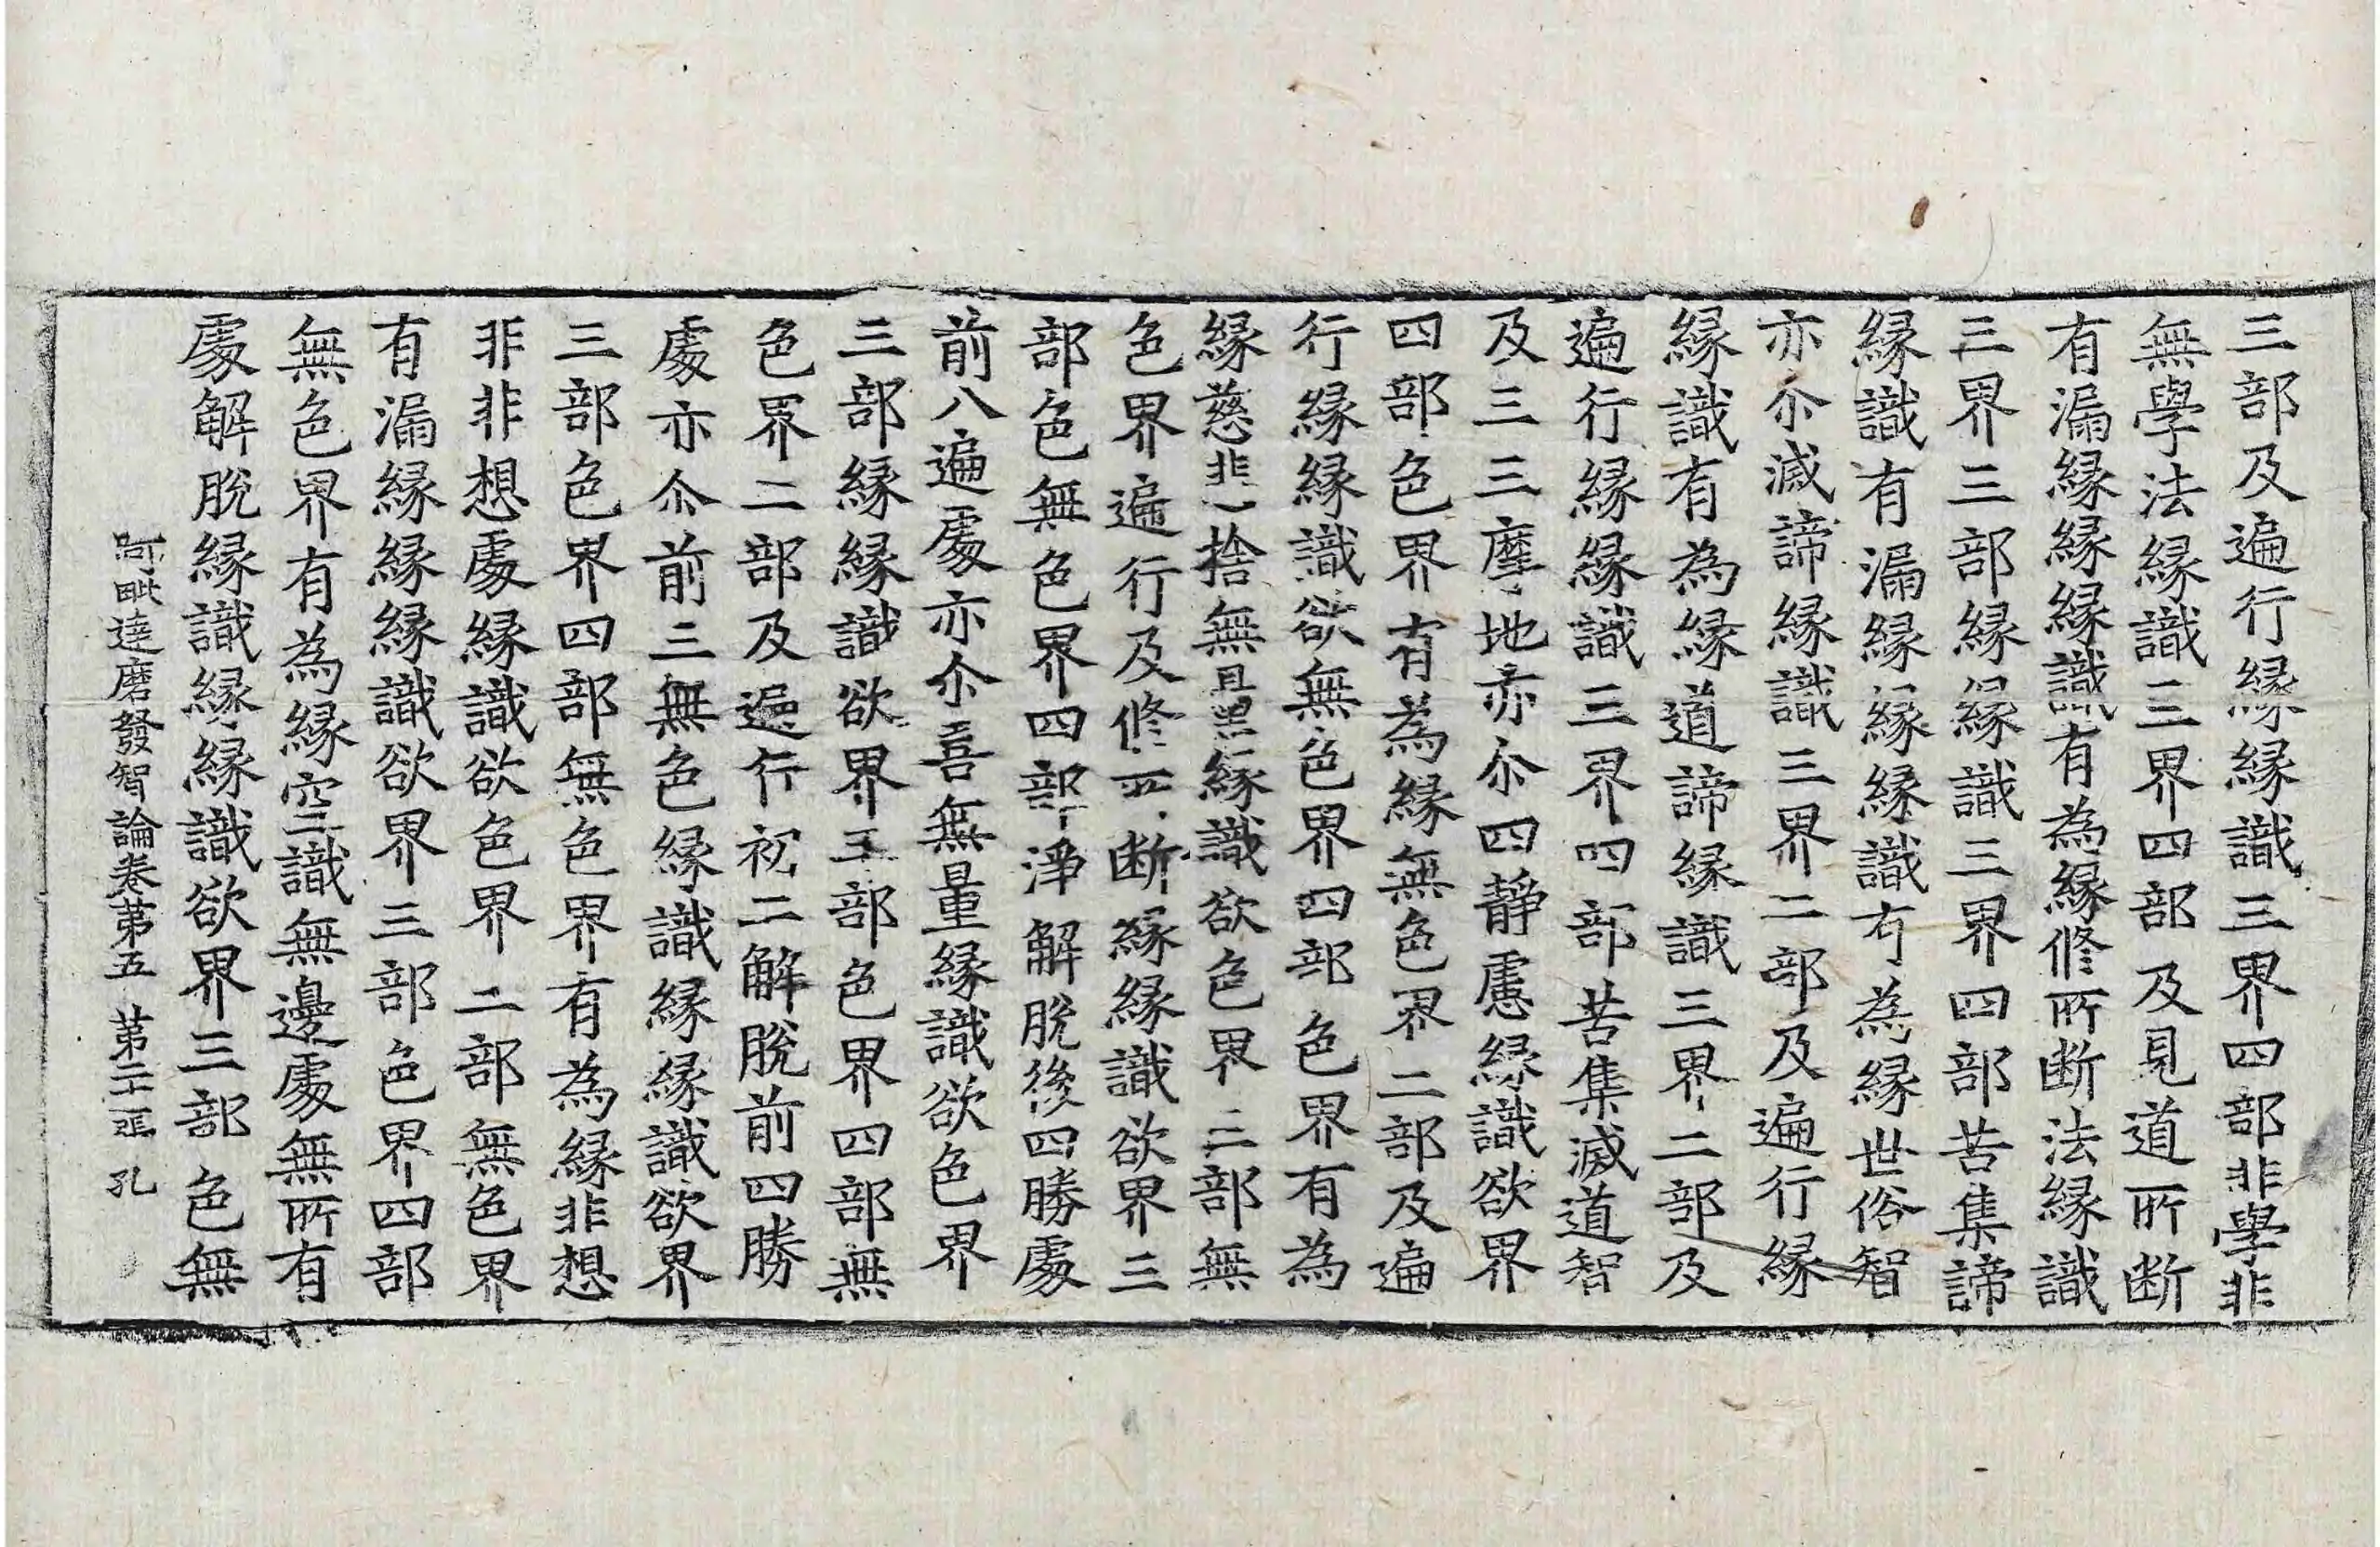 三部及遍行縁縁識三界四部非學非
無學法縁識三界四部及見道所断
有漏縁縁縁識有為縁修所断法縁識
三界三部縁縁識三界四部苦集諦
縁識有漏縁縁縁識有為縁世俗智
亦尒滅諦縁識三界二部及遍行縁
縁識有為縁道諦縁識三界二部及
遍行縁縁識三界四部苦集滅道智
及三三摩地亦尒四靜慮縁識欲界
四部色界有為縁無色界二部及遍
行縁縁識欲無色界四部色界有為
縁慈悲捨無量縁識欲色界三部無
色界遍行及修所断縁縁識欲界三
部色無色界四部淨解脫後四勝處
前八遍處亦尒喜無量縁識欲色界
三部縁縁識欲界三部色界四部無
色界二部及遍行初二解脫前四勝
處亦尒前三無色縁識縁縁識欲界
三部色界四部無色界有為縁非想
非非想處縁識欲色界二部無色界
有漏縁縁縁識欲界三部色界四部
無色界有為縁空識無邊處無所有
處解脫縁識縁縁識欲界三部色無
阿毗達磨發智論卷苐五 苐二十張 孔